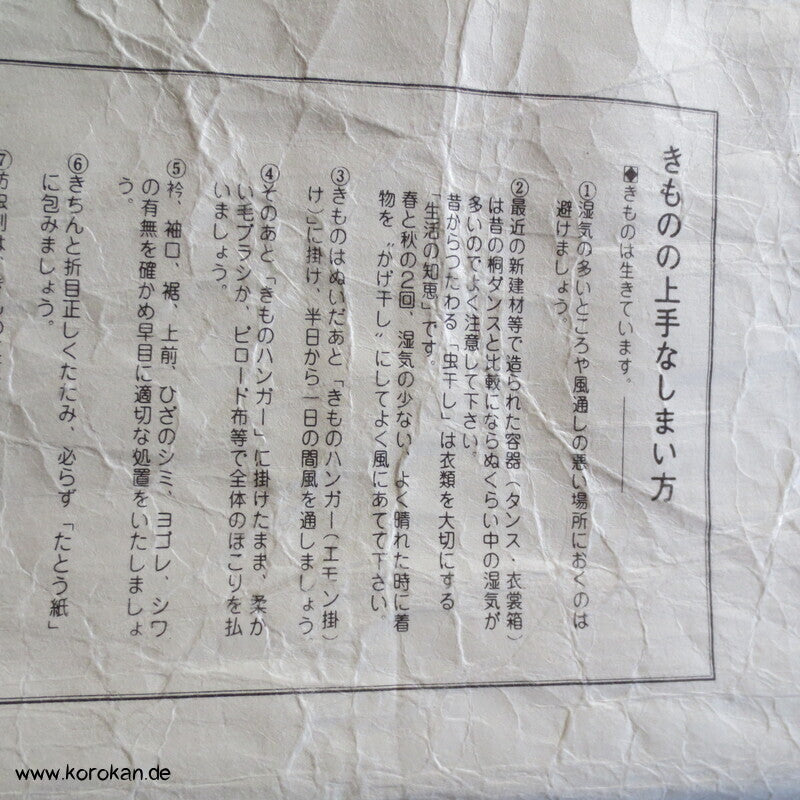 きものの上手なしまい方
◆きものは生きています。
①湿気の多いところや風通しの悪い場所におくのは
避けましょう。
②最近の新建材等で造られた容器(タンス・衣裳箱)
は昔の桐ダンスと比較にならぬくらい中の湿気が
多いのでよく注意して下さい。
昔からつたわる「虫干し」は衣類を大切にする
「生活の知恵」です。
春と秋の2回、湿気の少ない、よく晴れた時に着
物を〝かげ干し〟にしてよく風にあてて下さい。
③きものはぬいだあと「きものハンガー(エモン掛
け)」に掛け、半日から一日の間風を通しましょう。
④そのあと「きものハンガー」に掛けたまま、柔か
い毛ブラシか、ビロード布等で全体のほこりを払
いましょう。
⑤衿、袖口、裾、上前、ひざのシミ、ヨゴレ、シワ
の有無を確かめ早目に適切な処置をいたしましょ
う。
⑥きちんと折目正しくたたみ、必らず「たとう紙」
に包みましょう。
www.korokan.de